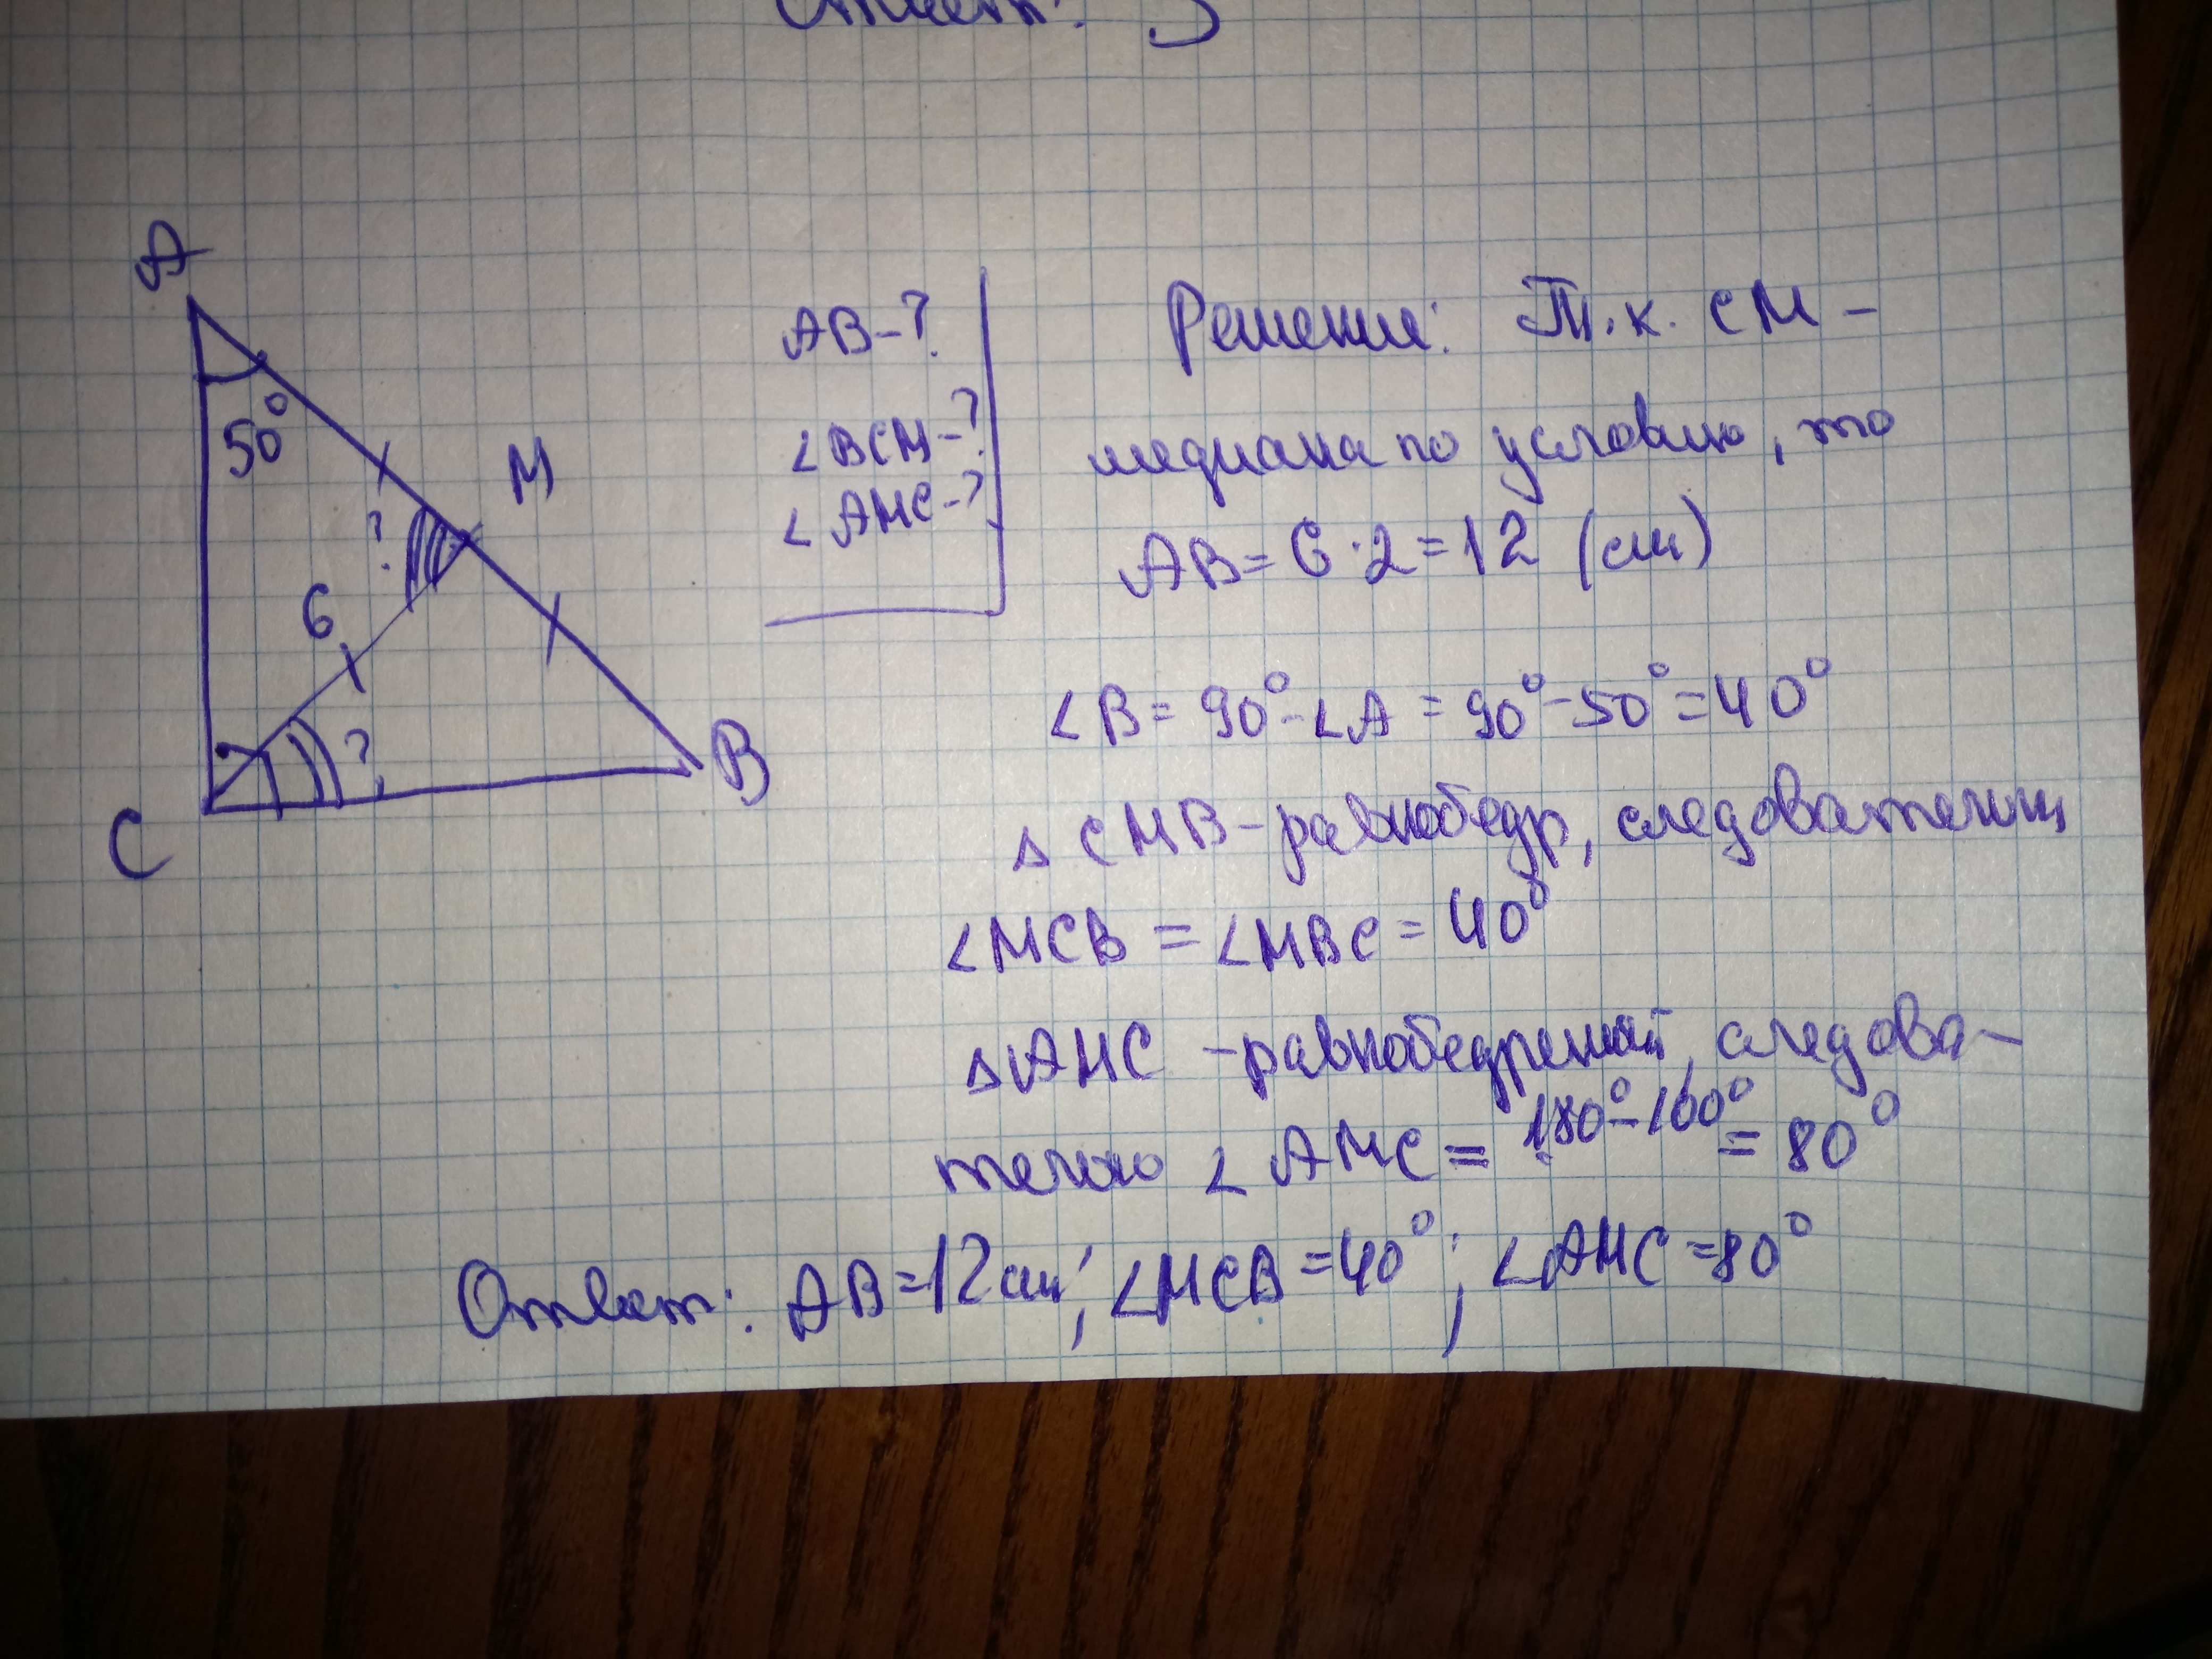 Ответ: 5
A
50°
M
?
6
?
C
B
AB-?
∠BCM-?
∠AMC-?
Решение: Т.к. CM-
медиана по условию, то
AB = 6·2=12 (см)
∠B = 90°-∠A = 90°-50°=40°
△CMB-равнобедр, следовательно
∠MCB = ∠MBC = 40°
△AMC -равнобедренный, следова-
тельно ∠AMC = 180°-100° = 80°
Ответ: AB=12см; ∠MCB =40°; ∠AMC =80°